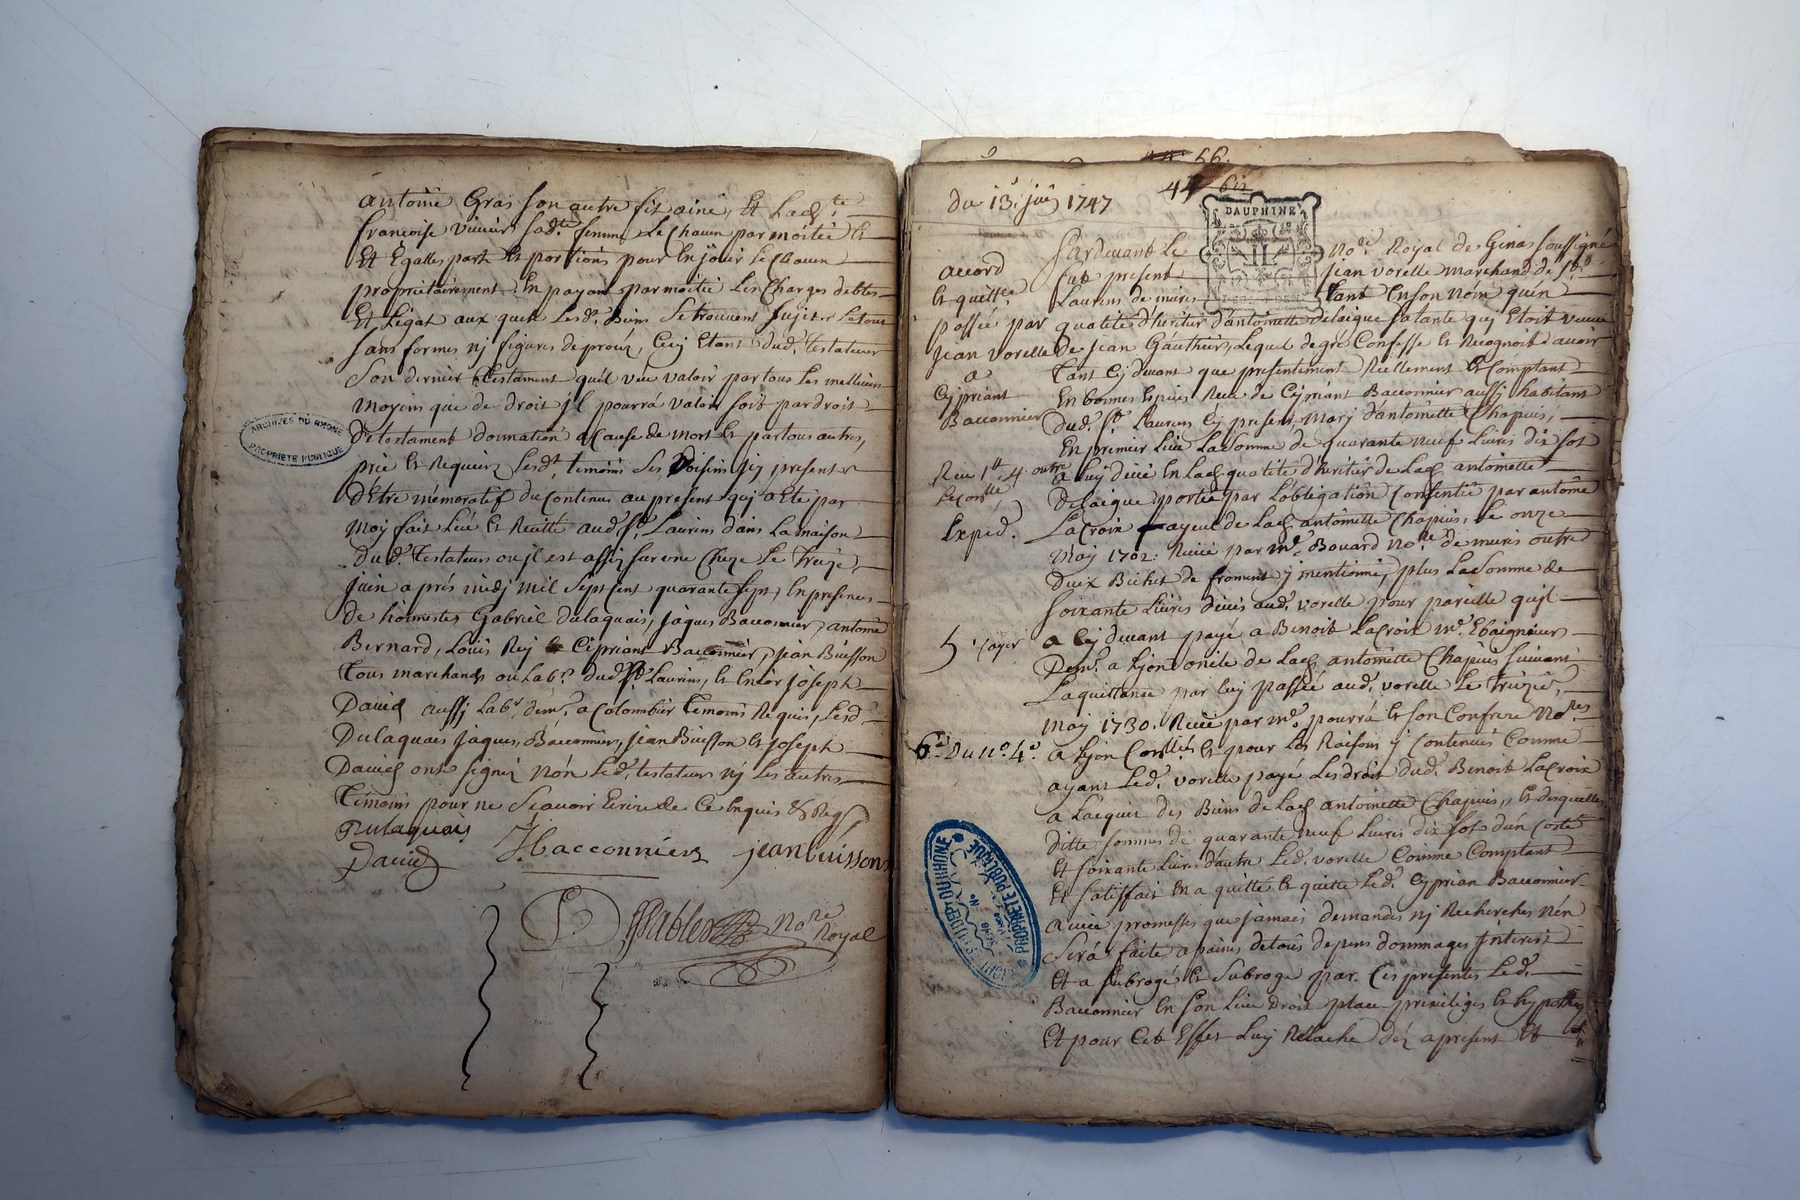 antoine Gras son autre fils ainé, Et lad.te
francoise vivier sad.te femme Le Chacun par moitié Et
Et Egalles parts Et portions pour En jouir Le Chacun
propriétairement En payant par moitié Les Charges debtes
Et Légat aux quels Lesd. Biens Se trouvent Sujets Le tout
sans formes nj figures de proces, Cecy Etant dud. testateur
son dernier testament quil veut valoir par tous Les meilleurs
moyens que de droit jl pourrá valoir soit par droit
de testament donnation a Cause de mort Et par tous autres,
prie Et Requiert Lesd.t temoins Ses voisins jcy presents
dEtre mémoratif du Contenus au present quj a Eté par
moy fait Leu Et Recitté aud. s.t Laurens dans La maison
dud. testateur ou jl est assis sur une Cheze Le treize
juin aprés midj mil sept sent quarante sept, En presence
de hónnestes Gabriel dulaquais, jaques Baconnier, antoine
Bernard, Loüis Rej Ciprian Baconnier, jean Buisson
tous marchands ou Lab.rs dud. s.t Laurens, Et Encor joseph
David aussj Lab.r dem.t a Colombier temoins Requis, Lesd.
Dulaquais jaques Baconnier, jean Buisson Et joseph
David ont signé nón Led. testateur nj Les autres
temoins pour ne Sçavoir Ecrire de Ce Enquis Et Reqs
Dulaquais
David J Bacconnier jean buisson
No.re Royal
ARCHIVES DU RHONE
PROPRIETE PUBLIQUE
56
44 bis
du 13.e jui 1747
DAUPHINE
accord
Et quitt.ce
passée par
jean vorelle
a
Cypriant
Baconnier
Expéd.
pardevant Le No.re Royal de Genas soussigné
fut present jean vorelle marchand de s.t
Laurens de mures tant En son nóm quen
qualité d'heritier d'antoinette delaigue sa tante quj Etoit veuve
de jean Gauthier, Lequel de gré Confesse Et Recognoit dauoir
tant Cy devant que presentement Reellement Et Comptant
En bonnes Especes Receu de Cypriánt Baconnier aussj habitant
dud. s.t Laurens Cy present, mary d'antoinette Chapuis,
En premier Lieu La somme de quarante neuf Livres dix sol
a luy deüe En lad. qualité d'heritier de Lad. antoinette
delaigue portée par Lobligation Consentie par antoine
Lacroix ayeul de Lad. antoinette Chapuis, Le onze
may 1702. Receu par m.e Bouard no.re de mures outre
deux Bichet de froment y mentionné, plus La somme de
soixante Livres deües aud. vorelle pour pareille qujl
a Cy devant payé a Benoit Lacroix m.e Ebaigneur
Dem.t a Lyon oncle de Lad. antoinette Chapuis suivant
La quittance par luy passée aud. vorelle Le treize
may 1730. Receu par m.e pourrá Et son Confrere No.res
6.e Du N.o 4.e
a Lyon Con.llée Et pour Les Raisons y Contenues Comme
ayant Led. vorelle payé Les droit dud. Benoit Lacroix
a Lacquit des Biens de Lad. antoinette Chapuis, Et desquelles
ditte sommes de quarante neuf Livres dix sols d'un Costé
Et soixante Livres d'autre Led. vorelle Comme Comptant
Et satisfait En a quitté Et quitte Led. Cyprian Baconnier
avec promesses que jamais demandes nj Recherches nén
será faite a peines de tous depens dommages jnterest
Et a subrogé Et subroge par Ces presentes Led.
Baconnier En son Lieu droit place privileges Et hypotteq
Et pour Cet Effet Luy Relache dez a present Et
PROPRIETE PUBLIQUE